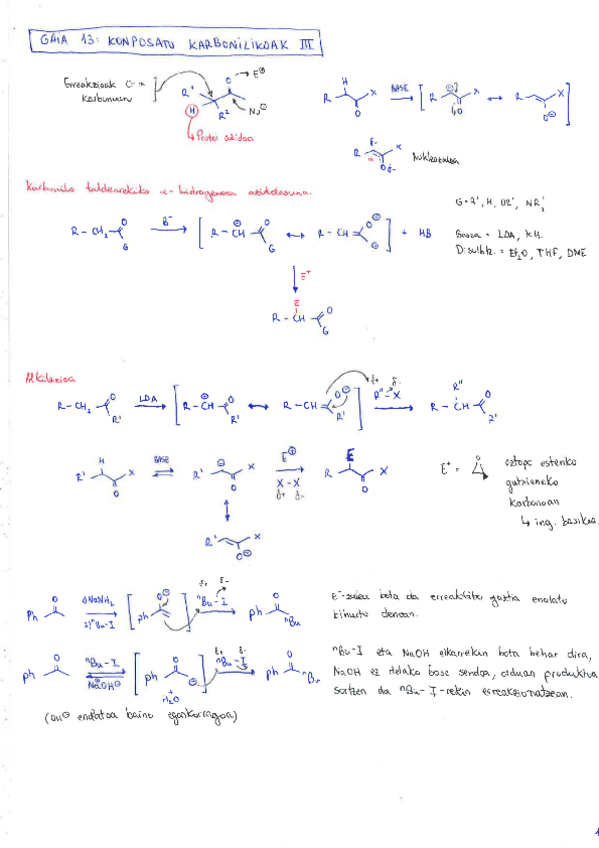 GAIA 13: KONPOSATU KARBONILIKOAK III
Erreakzioak C-α
karbonoan
R¹
R²
H
O
E⊕
Nu⊖
↳ Protoi azidoa
H
R
X
O
BASE
R
X
O
↔
R
X
O⊖
R
X
O δ-
δ-
Nukleozaleа
Karbonilo taldearekiko α-hidrogenoen azidotasuna.
G = R', H, OR', NR'₂
R-CH₂
O
G
B⁻
R-CH
O
G
↔
R-CH
O⊖
G
+ HB
Basea = LDA, KH.
Disolbtz. = Et₂O, THF, DME
E⁺
E
R-CH
O
G
Alkilazioa
R-CH₂
O
R'
LDA
R-CH
O
R'
↔
R-CH
O⊖
R'
δ+ δ-
R''-X
R''
R-CH
O
R'
H
R'
X
O
BASE
R'
X
O
E⊕
X-X
δ+ δ-
E
R
X
O
E⁺ =
O
oztopo esteriko
gutxieneko
karbonoan
↳ ing. basikoa
R'
X
O⊖
Ph
O
1) NaNH₂
2) ⁿBu-I
Ph
O⊖
δ+ δ-
ⁿBu-I
Ph
O
ⁿBu
E⁺-zalea bota da erreaktibo guztia enolatu
bihurtu denean.
Ph
O
ⁿBu-I
NaOH⊖
Ph
O⊖
+
H₂O
δ+ δ-
ⁿBu-I
Ph
O
ⁿBu
ⁿBu-I eta NaOH elkarrekin bota behar dira,
NaOH ez delako base sendoa, orduan produktua
sortzen da ⁿBu-I-rekin erreakzionatzean.
(OH⊖ enolatoa baino egonkorragoa)
1